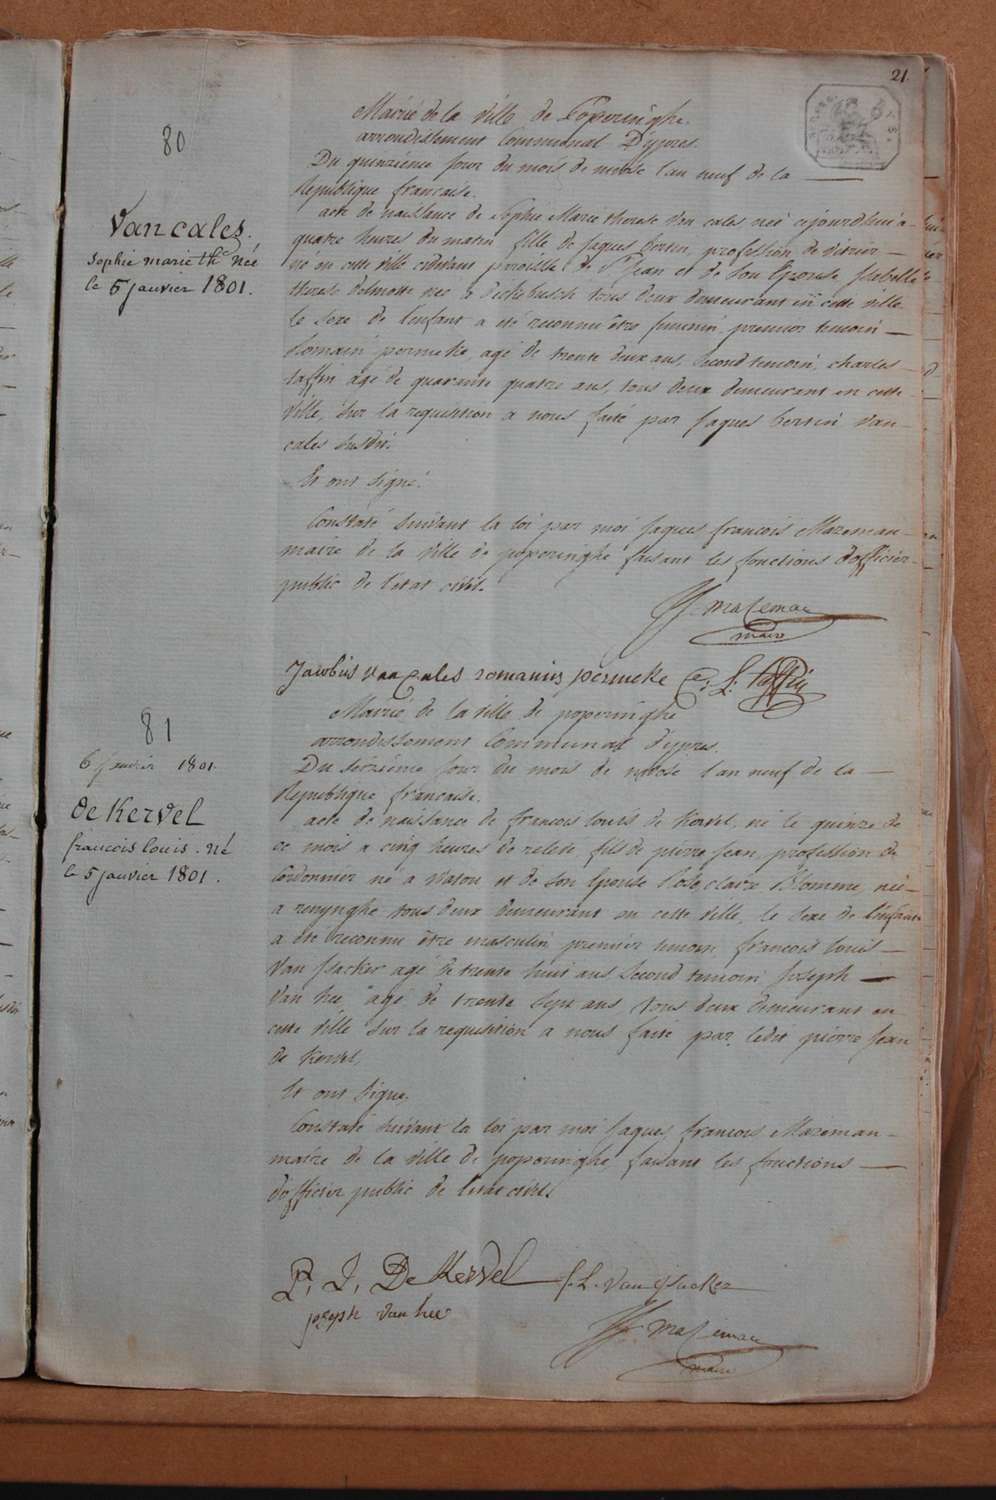 21.
80
Van cales.
Sophie marie th. Né
le 5 janvier 1801.
Mairie de la ville de Poperinghe.
arrondissement Communal D'ypres.
Du quinzieme jour du mois de nivose l'an neuf de la
Republique francaise.
acte de naissance de Sophie Marie therese Van cales neé cejourd'hui a
quatre heures du matin fille de Jaques bertin, profession de vitrier
né en cette ville cidevant paroisse de St Jean et de son Epouse Isabelle
therese delmotte neé a dickebusch tous deux demeurant en cette ville
le sexe de l'enfant a été reconnu être feminin premier temoin
Romain permeke, agé de trente deux ans, second temoin, charles
taffin agé de quarante quatre ans, tous deux demeurant en cette
ville, sur la requisition a nous faite par Jaques bertin Van
cales susdit.
Et ont signé.
Constaté suivant la loi par moi Jaques francois Mazeman
maire de la ville de poperinghe faisant les fonctions d'officier
public de l'etat civil.
JF. mazeman
maire
Jacobus van Cales romanus permeke C: L. taffin
81
6 janvier 1801.
de Kervel
francois louis. Né
le 5 janvier 1801.
Mairie de la ville de poperinghe
arrondissement Communal d'ypres.
Du seizieme jour du mois de nivose l'an neuf de la
Republique francaise.
acte de naissance de francois louis de Kervel, né le quinze de
ce mois a cinq heures de relevé, fils de pierre Jean, profession de
Cordonnier né a Watou et de son Epouse Rose claire Blomme, neé
a renynghe tous deux demeurant en cette ville, le sexe de l'enfant
a été reconnu être masculin, premier temoin francois louis
Van Isacker agé de trente huit ans second temoin Joseph
Van hee agé de trente sept ans, tous deux demeurant en
cette ville sur la requisition a nous faite par ledit pierre Jean
de Kervel,
Et ont signé,
Constaté suivant la loi par moi Jaques francois Mazeman
maire de la ville de poperinghe, faisant les fonctions
d'officier public de l'etat civil.
P. J. De Kervel f. L. Van Isacker
joseph van hee
JF. mazeman
maire